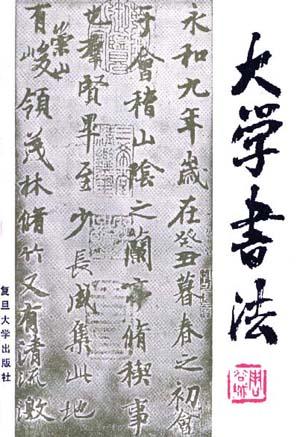 大学书法
永和九年歲在癸丑暮春之初會
于會稽山陰之蘭亭脩稧事
也群賢畢至少長咸集此地
有崇山峻領茂林脩竹又有清流激
复旦大学出版社